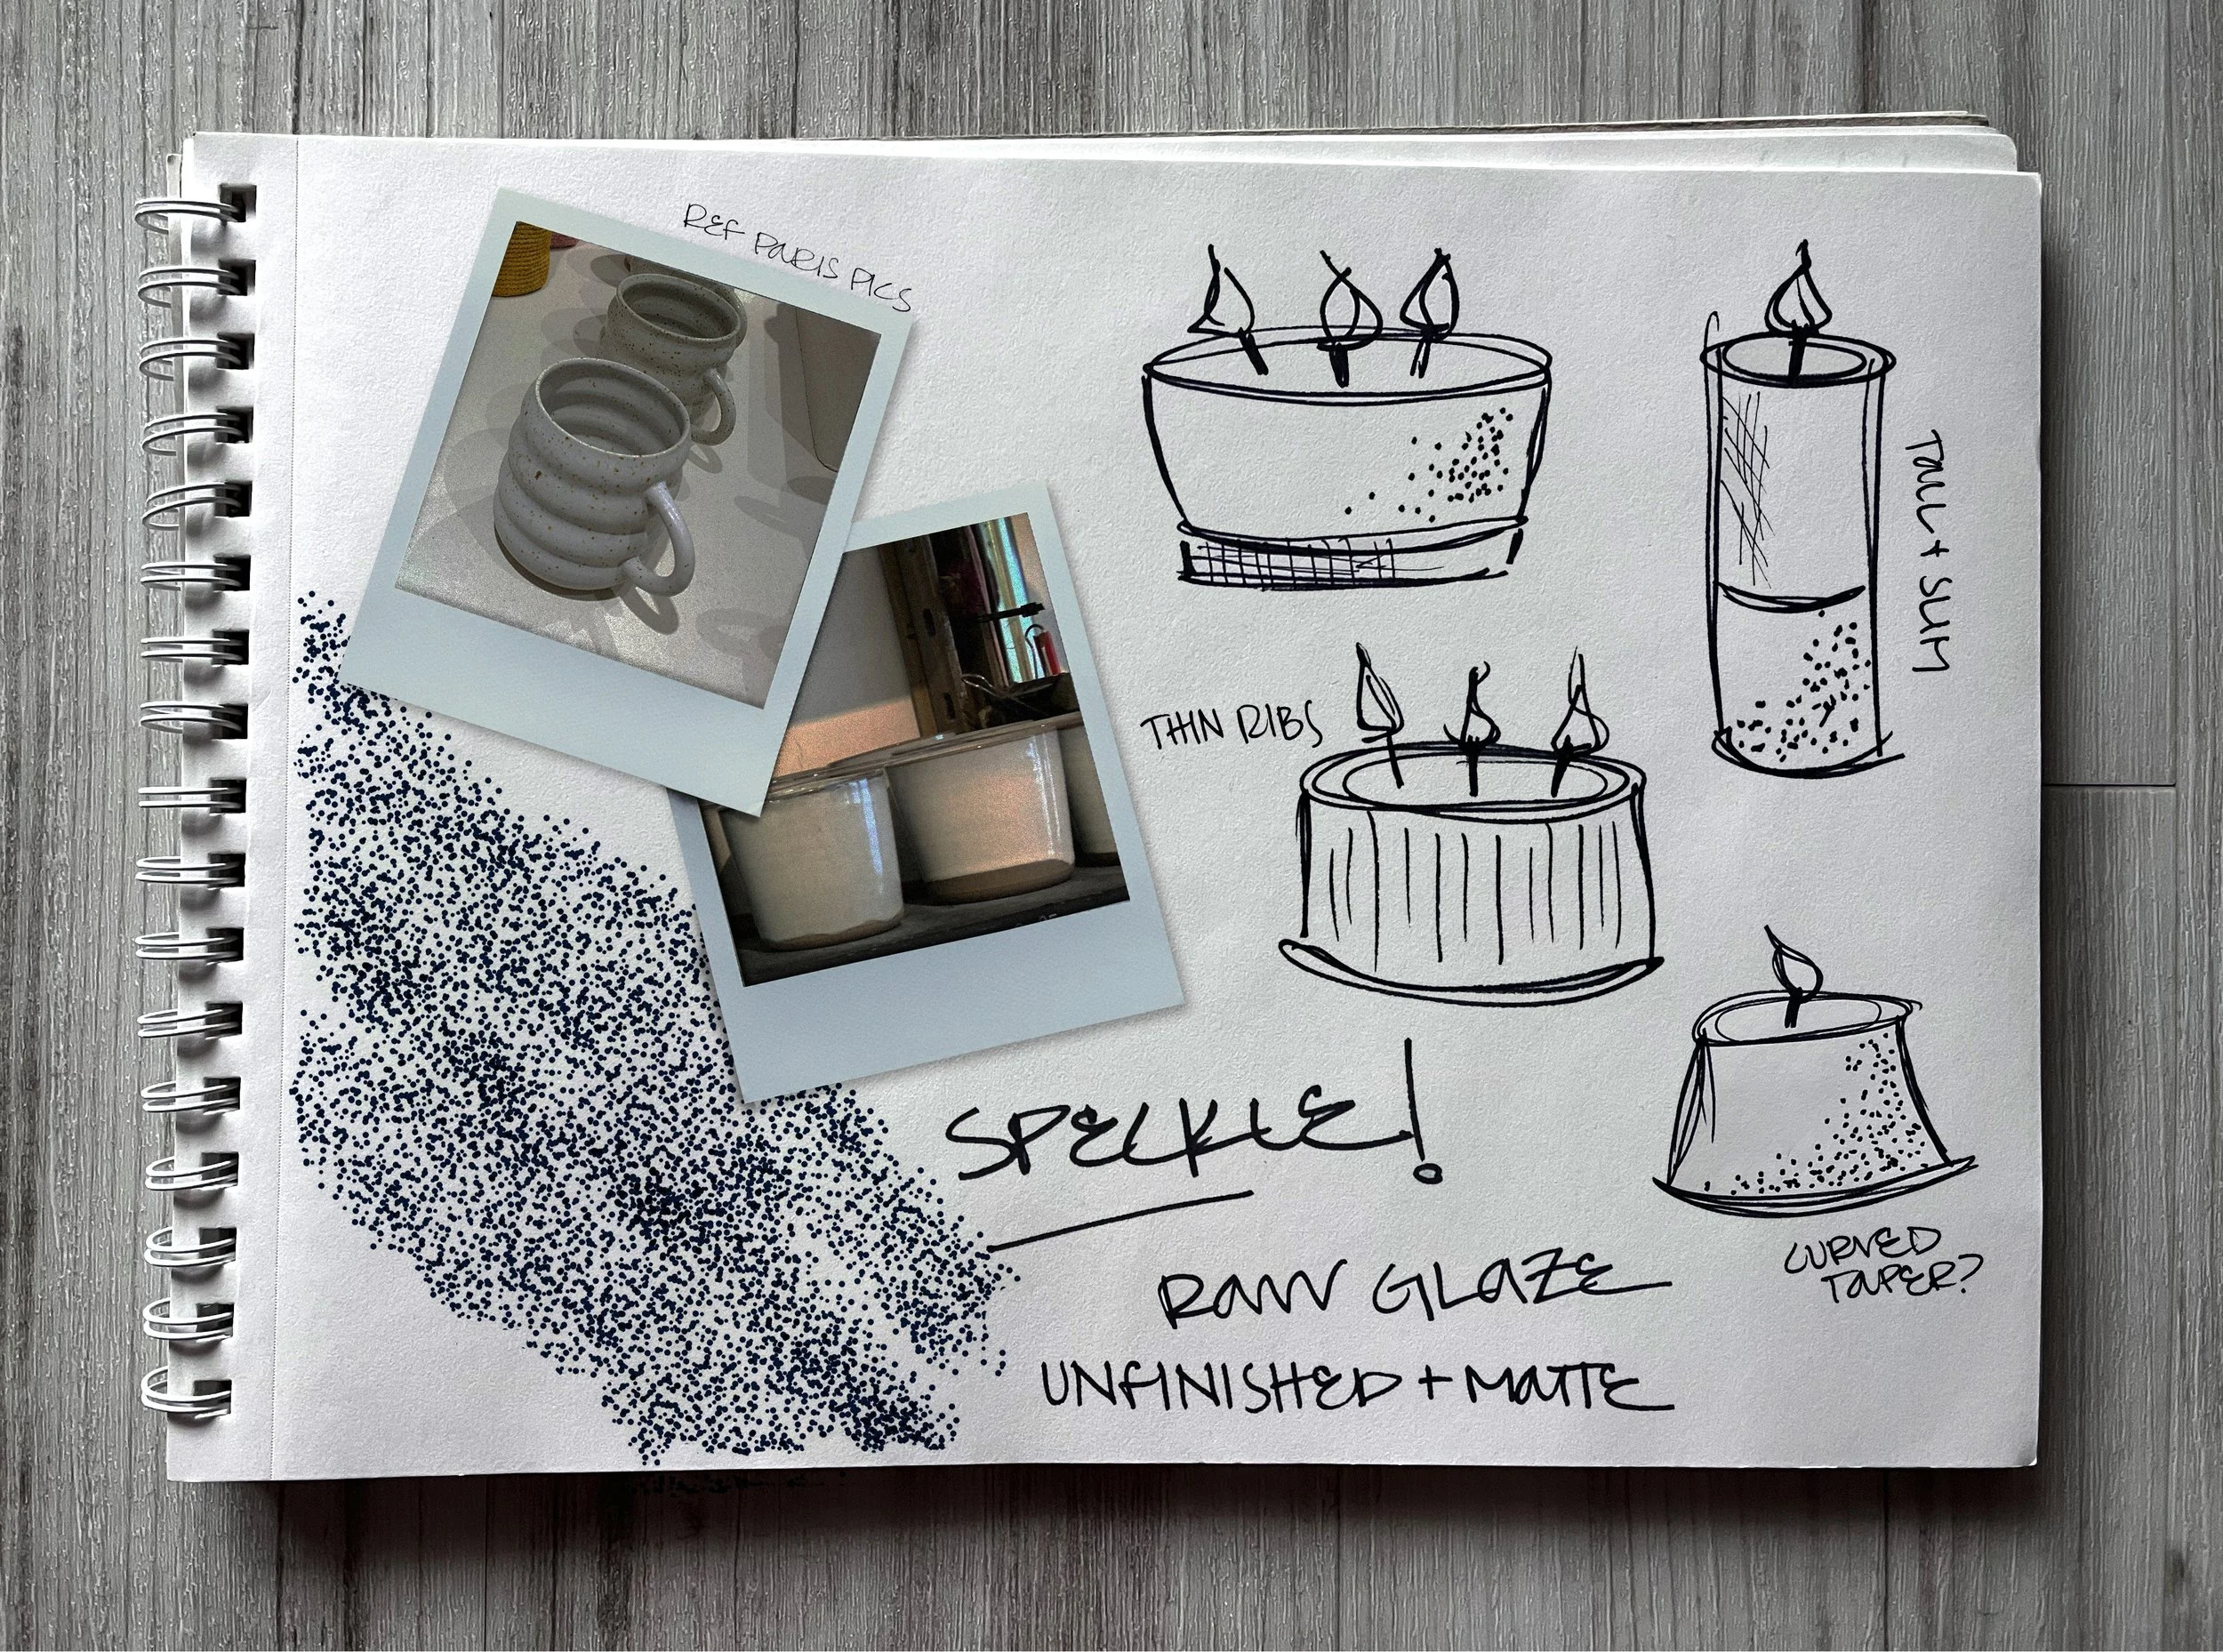 REF PARIS PICS
TALL + SLIM
THIN RIBS
SPECKLE!
CURVED
TAPER?
RAW GLAZE
UNFINISHED + MATTE